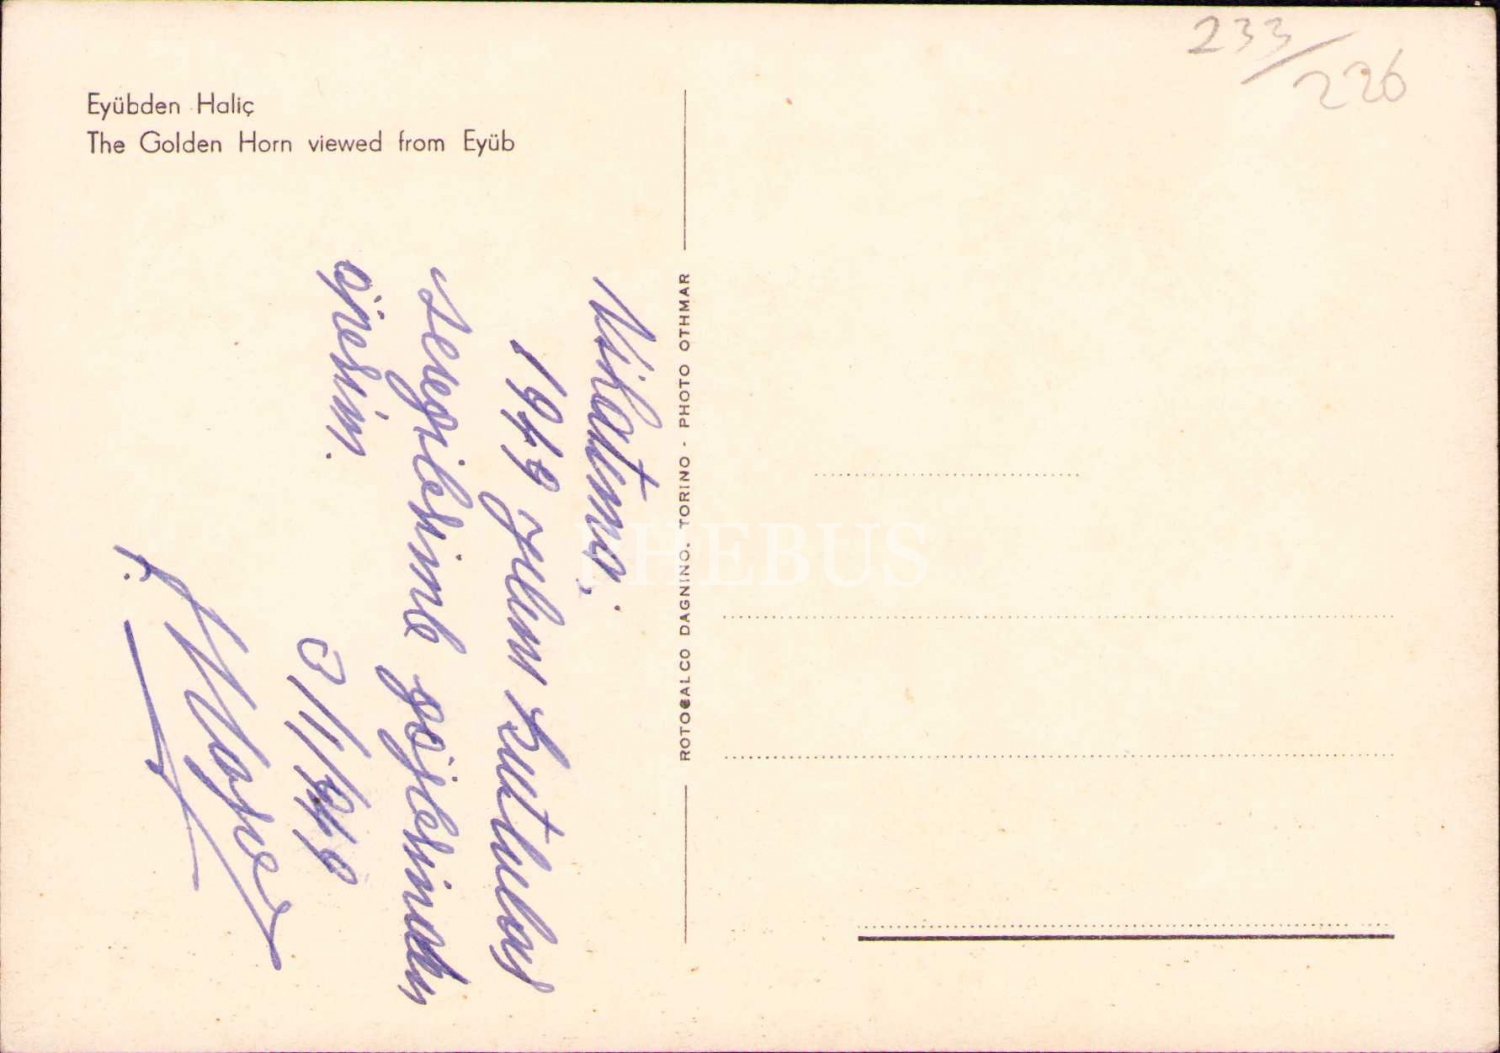 233/226
Eyübden Haliç
The Golden Horn viewed from Eyüb
ROTOCALCO DAGNINO. TORINO - PHOTO OTHMAR
PHEBUS
1949 yılını kutlular
sevgilerimle gözlerinden
öperim.
3/1/949